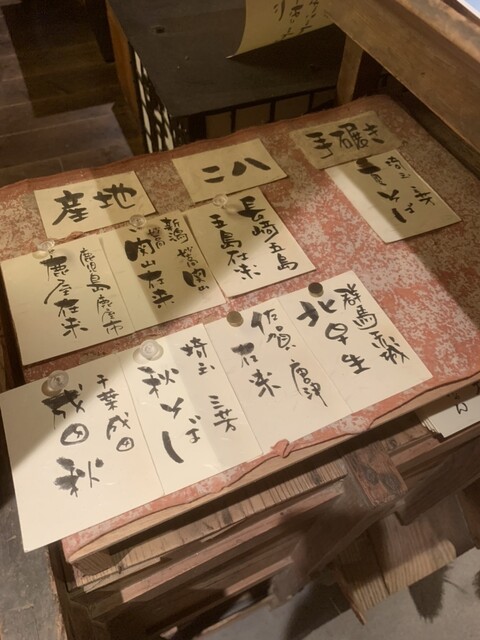 産地
二八
手碾き
埼玉 三芳
そば
長崎 五島
五島在来
新潟 妙高 関山
関山在来
鹿児島 鹿屋市
鹿屋在来
群馬 赤城
北早生
佐賀 唐津
在来
埼玉 三芳
秋そば
千葉 成田
成田 秋
ん